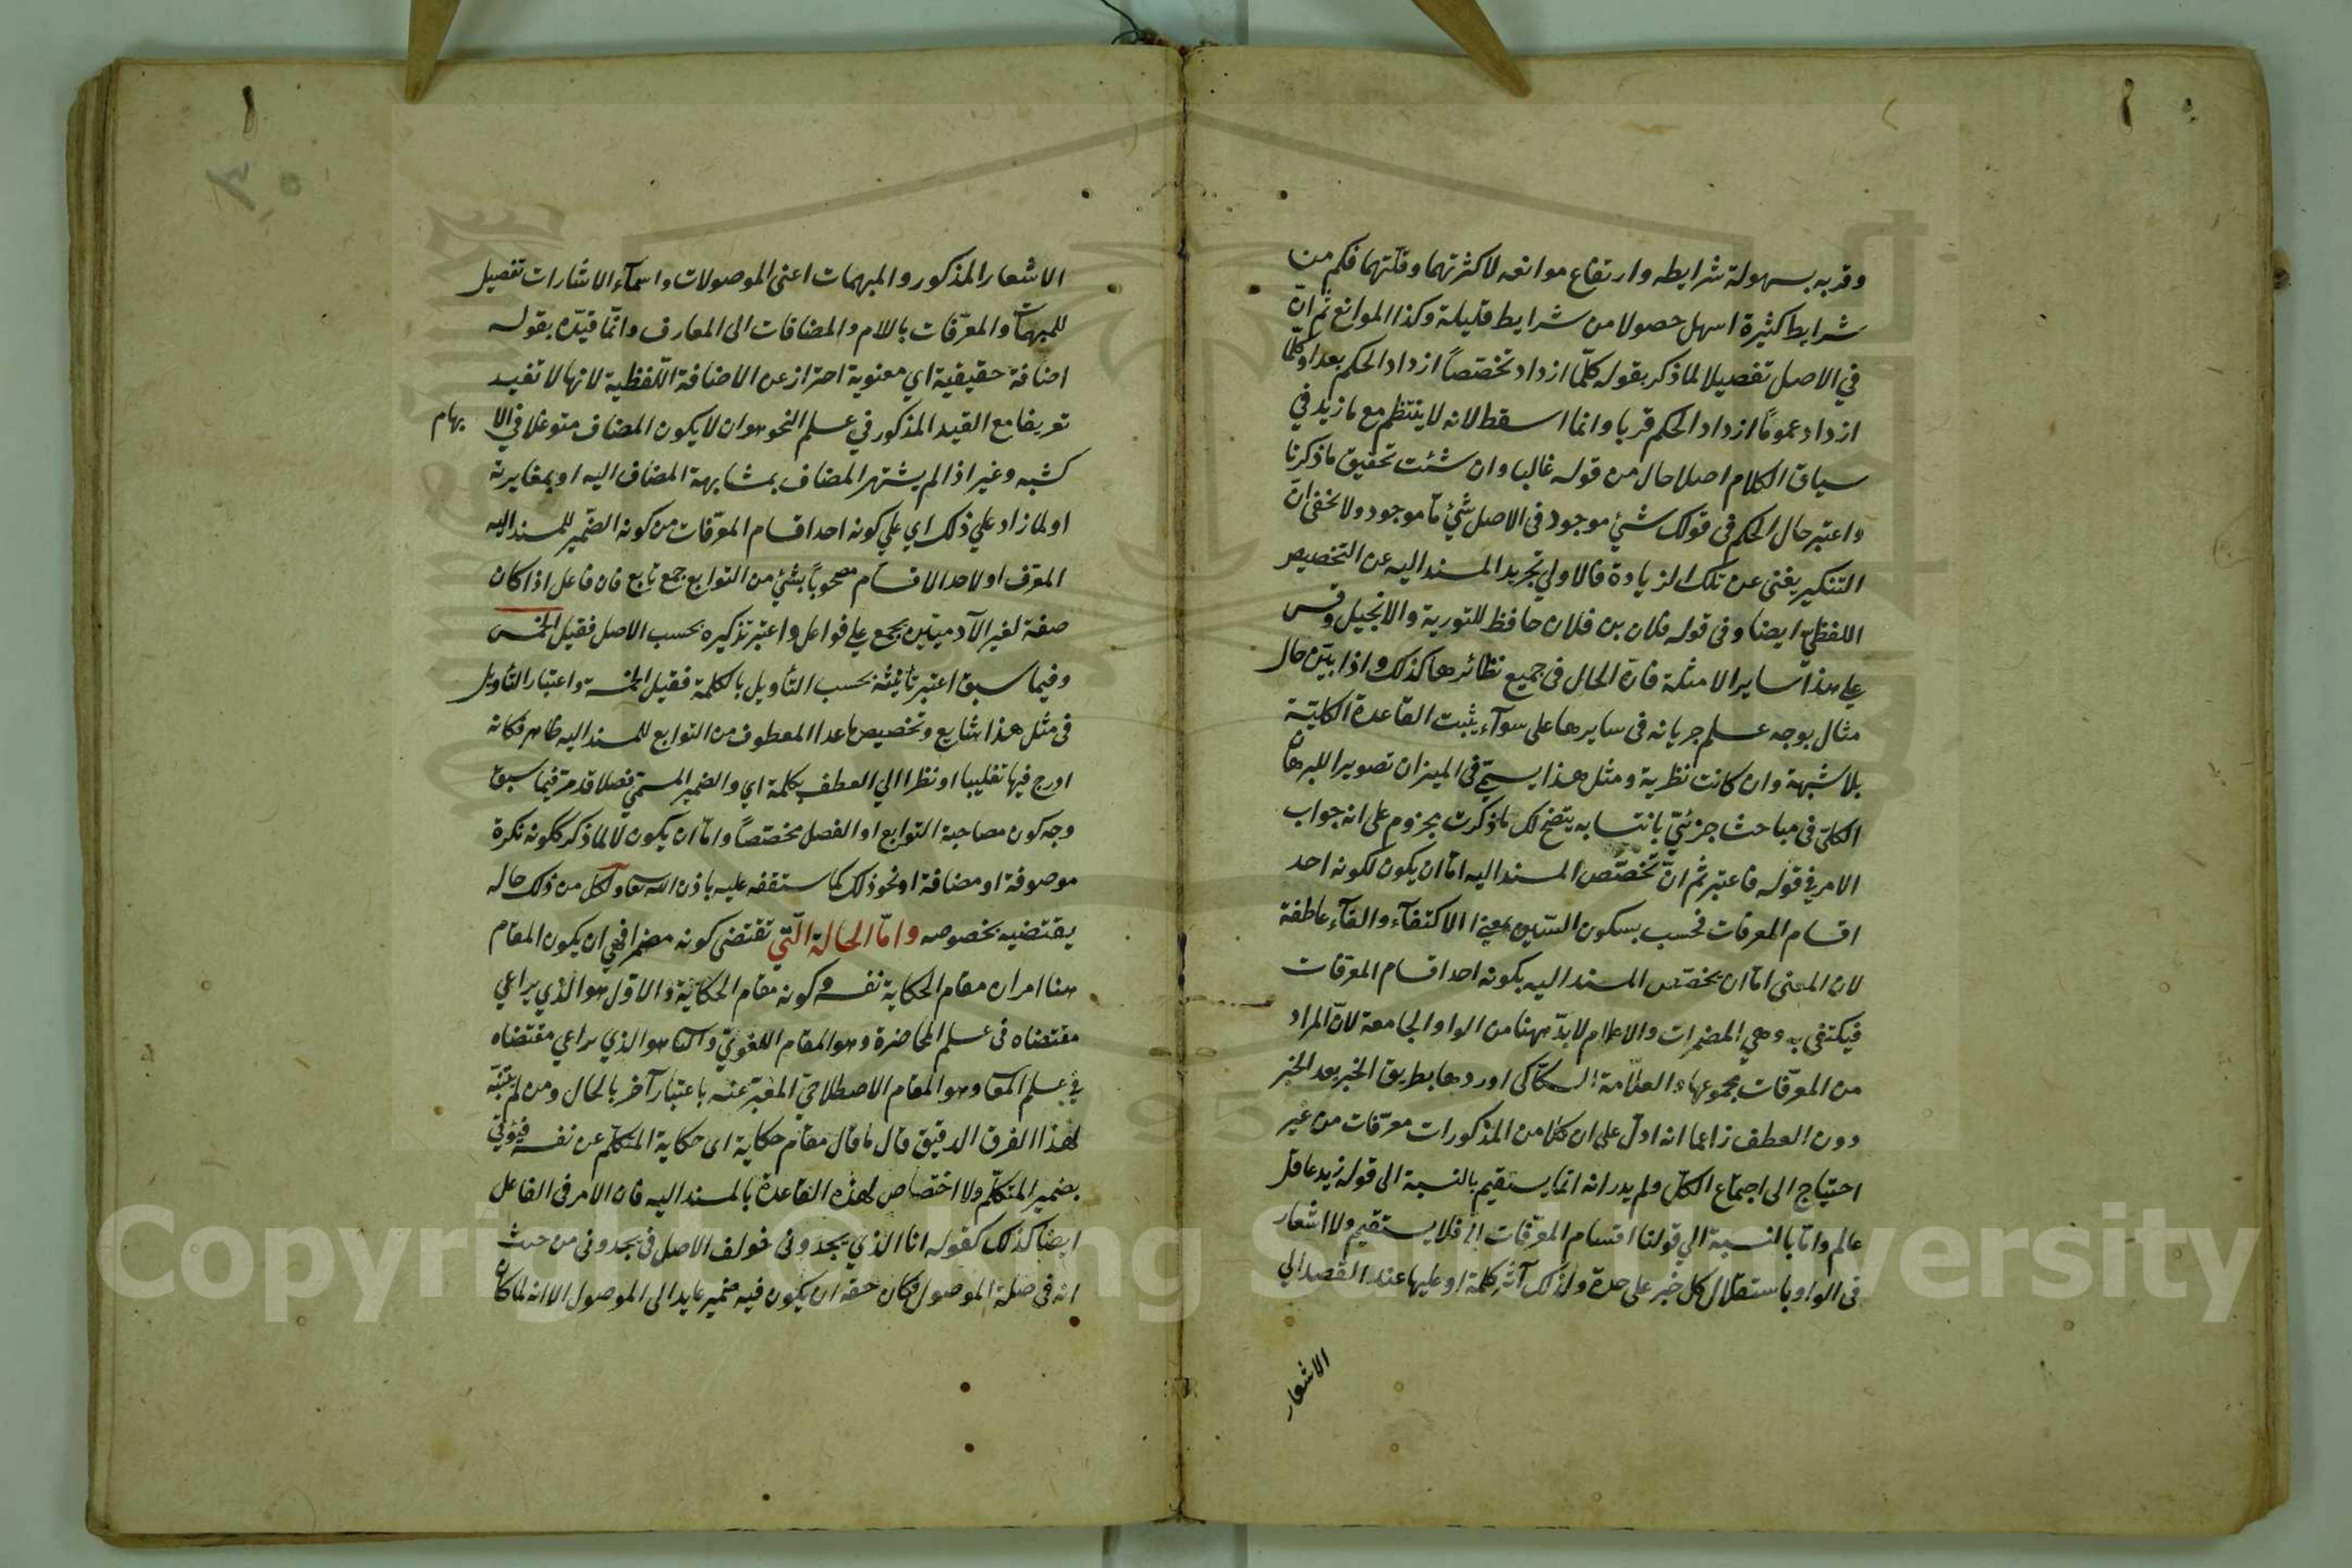 وقربه بسهولة شرايطه وارتفاع موانعه لاكثرتهما وقلتهما فكم من
شرايط كثيرة اسهل حصولا من شرايط قليلة وكذا الموانع ثم انّ
في الاصل تفصيلا لما ذكر بقوله كلّما ازداد تخصّصاً ازداد الحكم بعدا وكلّما
ازداد عموماً ازداد الحكم قربا وانما اسقط لانه لا ينتظم مع ما زيد في
سياق الكلام اصلا حال من قوله غالبا وان شئت تحقيق ما ذكرنا
واعتبر حال الحكم في قولك شئ موجود في الاصل شئ مّا موجود ولا يخفى انّ
التنكير يغني عن تلك الزيادة فالاولي تجريد المسند اليه عن التخصيص
اللفظي ايضا وفي قوله فلان بن فلان حافظ للتورية والانجيل وقس
علي هذا ساير الامثلة فانّ الحال في جميع نظائرها كذلك واذا بيّن حال
مثال بوجه علم جريانه في سايرها على سوآء يثبت القاعدة الكليّة
بلا شبهة وان كانت نظرية ومثل هذا يسمّي في الميزان تصويرا للبرهان
الكلّي في مباحث جزئيّ بانتسابه يتضح لك ما ذكرت مجزوم على انه جواب
الامر في قوله فاعتبر ثم انّ تخصّص المسند اليه امّا ان يكون لكونه احد
اقسام المعرفات فحسب بسكون السّين بمعنى الاكتفآء والفآء عاطفة
لان المعنى امّا ان يخصّص المسند اليه بكونه احد اقسام المعرفات
فيكتفي به وهي المضمرات والاعلام لا بدّ ههنا من الواو الجامعة لانّ المراد
من المعرّفات مجموعها والعلاّمة السكّاكي اوردها بطريق الخبر بعد الخبر
دون العطف زاعما انه ادلّ على ان كلا من المذكورات معرّفات من غير
احتياج الى اجتماع الكلّ ولم يدر انه انّما يستقيم بالنسبة الى قوله زيد عاقل
عالم وامّا بالنسبة الي قولنا اقسام المعرّفات الخ فلا يستقيم ولا اشعار
في الواو باستقلال كل خبر على حدة ولذلك آثر كلمة او عليها عند القصد الي
الاشعار
الاشعار المذكور والمبهمات اعني الموصولات واسمآء الاشارات تفصيل
للمبهمات والمعرّفات باللام والمضافات الى المعارف وانّما قيّده بقوله
اضافة حقيقية اي معنوية احتراز عن الاضافة اللّفظية لانها لا تفيد
تعريفا مع القيد المذكور في علم النحو هو ان لا يكون المضاف متوغلا في الا بهام
كشبه وغير اذا لم يشتهر المضاف بمشابهة المضاف اليه او بمغايرته
او لما زاد علي ذلك اي علي كونه احد اقسام المعرّفات من كونه الضّمير للمسند اليه
المعرّف او لاحد الاقسام مصحوباً بشئ من التوابع جمع تابع فان فاعل اذا كان
صفة لغير الآدميّين يجمع علي فواعل واعتبر تذكيره بحسب الاصل فقيل الخمس
وفيما سبق اعتبر تأنيثه بحسب التأويل بالكلمة فقيل الخمسة واعتبار التأويل
في مثل هذا شايع وتخصيص ما عدا المعطوف من التوابع للمسند اليه ظاهر فكانه
ادرج فيها تغليبا او نظرا الي العطف بكلمة اي والضمير المسمّي فصلا قد مرّ فيما سبق
وجه كون مصاحبة التوابع او الفصل مخصّصاً وامّا ان يكون لا لما ذكر ككونه نكرة
موصوفة او مضافة او نحو ذلك كما ستقفه عليه باذن الله تعا ولكل من ذلك حاله
يقتضيه بخصوصه وامّا الحالة الّتي تقتضي كونه مضمرا فهي ان يكون المقام
هنا امران مقام الحكاية نفسه وكونه مقام الحكاية والاوّل هو الّذي يراعي
مقتضاه في علم المحاضرة وهو المقام اللغويّ والثا هو الذي يراعي مقتضاه
في علم المعا وهو المقام الاصطلاحيّ المعبّر عنه باعتبار آخر بالحال ومن لم يتنبّه
لهذا الفرق الدقيق قال ما قال مقام حكاية اى حكاية المتكلّم عن نفسه فيؤتي
بضمير المتكلّم ولا اختصاص لهذه القاعدة بالمسند اليه فان الامر في الفاعل
ايضا كذلك كقوله انا الذي يجدوني خولف الاصل في يجدوني من حيث
انه في صلة الموصول فكان حقه ان يكون فيه ضمير عايد الى الموصول الا انه لما كان
Copyright © King Saud University